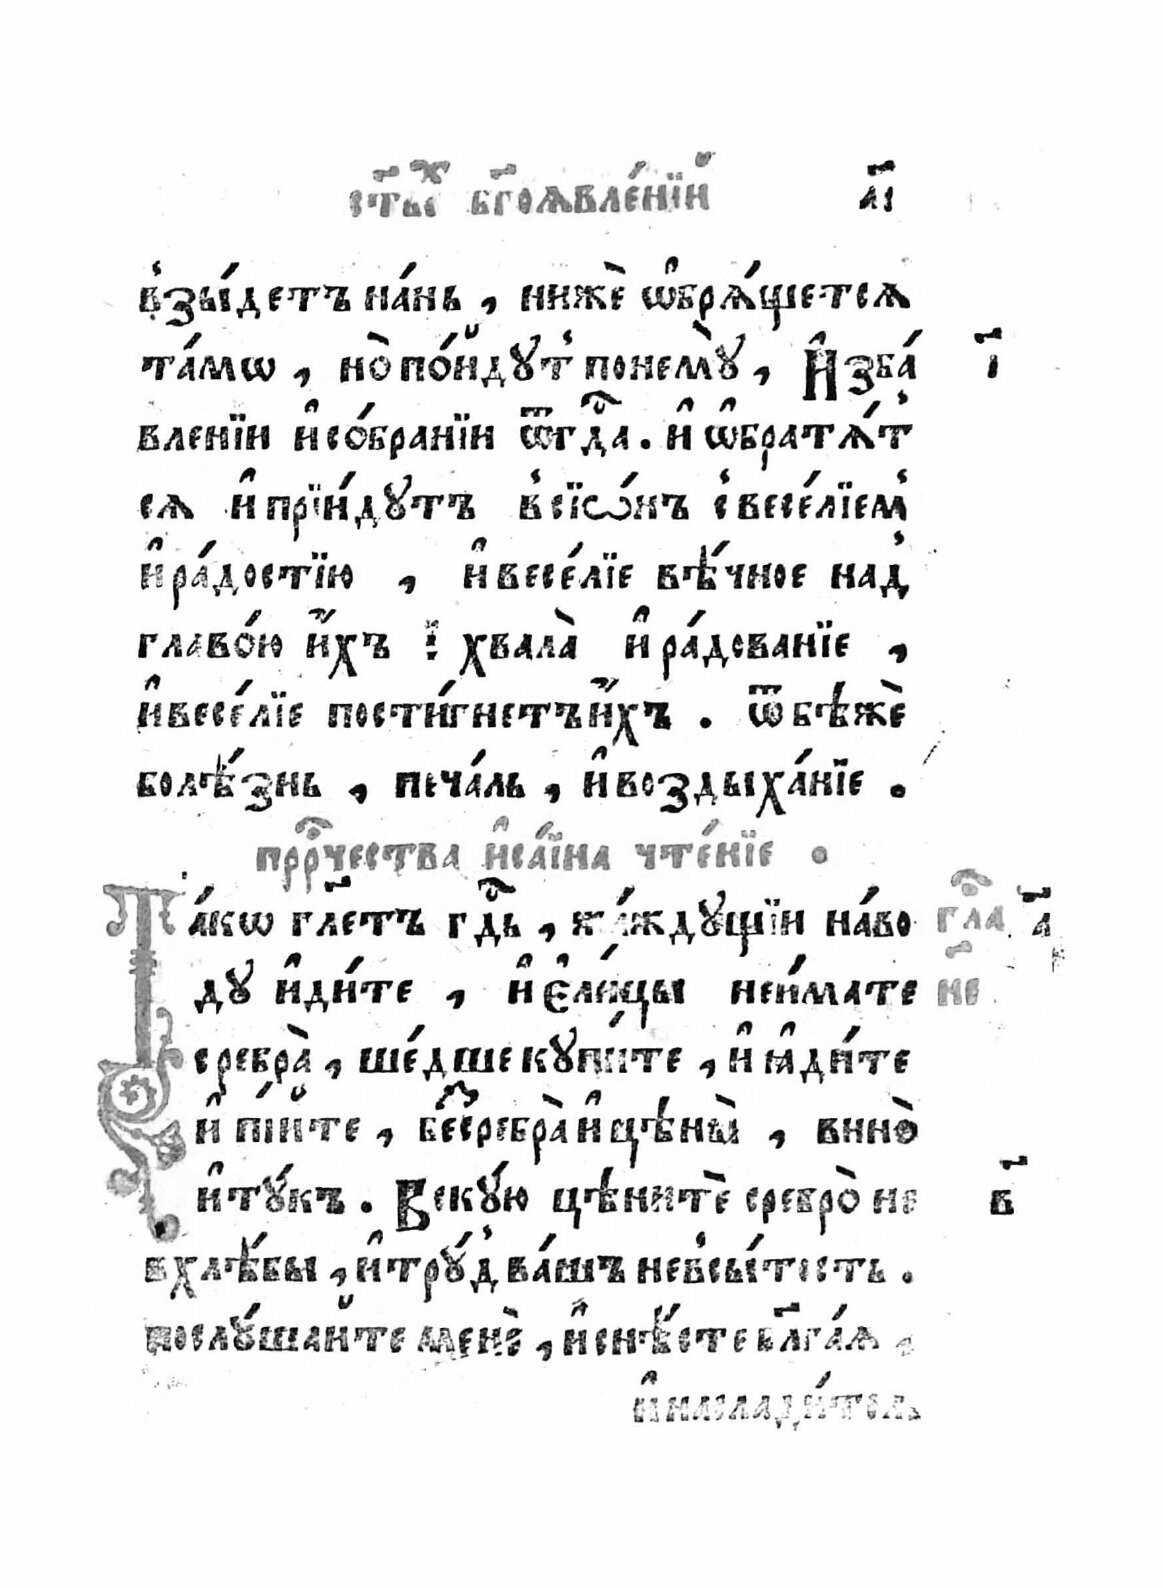 ст҃ы́х бг҃оѧвле́нїй а҃і
взы́детъ на́нь, нижѐ ѡ҆брѧ́щетсѧ
та́мѡ, но̀ по́йдут понемꙋ̀, И҆зба́ і҃
вленїи и҆ со́бранїи ѿгд҃а. и҆ ѡ҆братѧ́т
сѧ и҆ прїи́дꙋтъ в сїѡ́нъ с весе́лїем
и҆ ра́достїю, и҆ весе́лїе вѣ́чное над
главо́ю и҆́хъ ⁝ хвала̀ и҆ ра́дованїе,
и҆ весе́лїе пости́гнетъ и҆́хъ. ѿбѣ́же
болѣ́знь, печа́ль, и҆ воздыха́нїе.
прⷪ҇рчества и҆са́їина чте́нїе.
Та́кѡ гл҃етъ гдⷭ҇ь, жа́ждꙋщїи на́во гла а҃
дꙋ и҆ди́те, и҆ є҆ли́цы неи́мате н҃е
сребра̀, ше́дше кꙋпи́те, и҆ ꙗ҆ди́те
и҆ пі́йте, бес̾сребра̀ и҆ цѣны̀, вино̀
и҆ тꙋ́къ. Вскꙋ́ю цѣнитѐ сребро̀ не в҃
в хлѣ́бы, и҆ трꙋ́д ва́шъ не в сы́тость.
послꙋ́шайте менѐ, и҆ снѣ́сте бл҃га́ѧ,
и҆ наслади́тсѧ